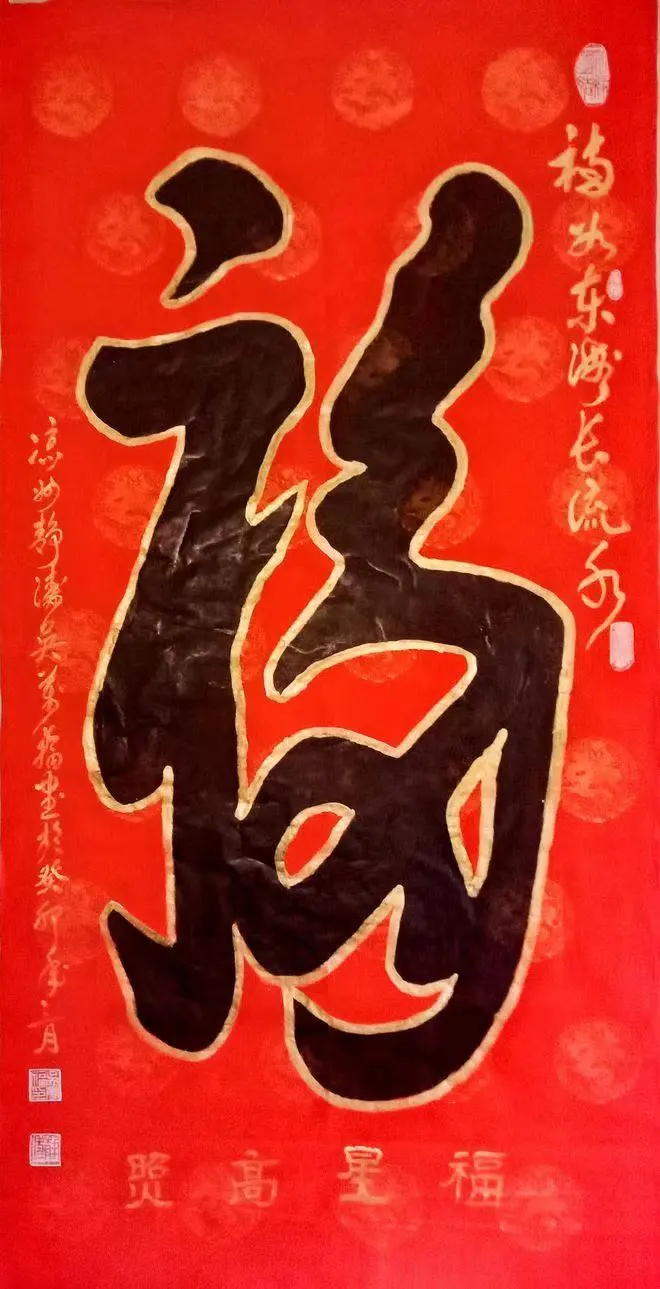 福如东海长流水
福
凉州静涛吴万福书于癸卯年三月
福星高照